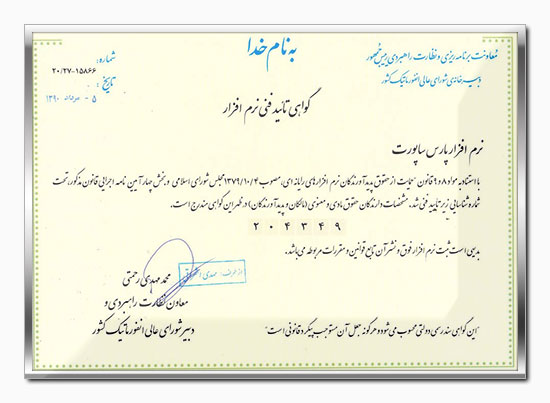 به نام خدا
معاونت برنامه ریزی و نظارت راهبردی رییس جمهور
دبیرخانه‌ی شورای عالی انفورماتیک کشور
شماره:
۲۰/۲۷-۱۵۸۶۶
تاریخ:
۵ - مرداد ۱۳۹۰
گواهی تائید فنی نرم افزار
نرم افزار پارس ساپورت
با استناد به مواد ۸ و ۹ قانون "حمایت از حقوق پدیدآورندگان نرم افزارهای رایانه ای، مصوب ۱۳۷۹/۱۰/۴ مجلس شورای اسلامی و بخش چهار آیین نامه اجرایی قانون مذکور، تحت
شماره شناسایی زیر تایید فنی شد. مشخصات دارندگان حقوق مادی و معنوی (مالکان و پدیدآورندگان) در ظهر این گواهی مندرج است.
۲۰۴۳۴۹
بدیهی است ثبت نرم افزار فوق و نشر آن تابع قوانین و مقررات مربوطه می‌باشد.
از طرف: مهدی
محمد مهدی رحمتی
معاون نظارت راهبردی و
دبیر شورای عالی انفورماتیک کشور
"این گواهی سندرسمی دولتی محسوب می شود و هرگونه جعل آن مستوجب پیگرد قانونی است"